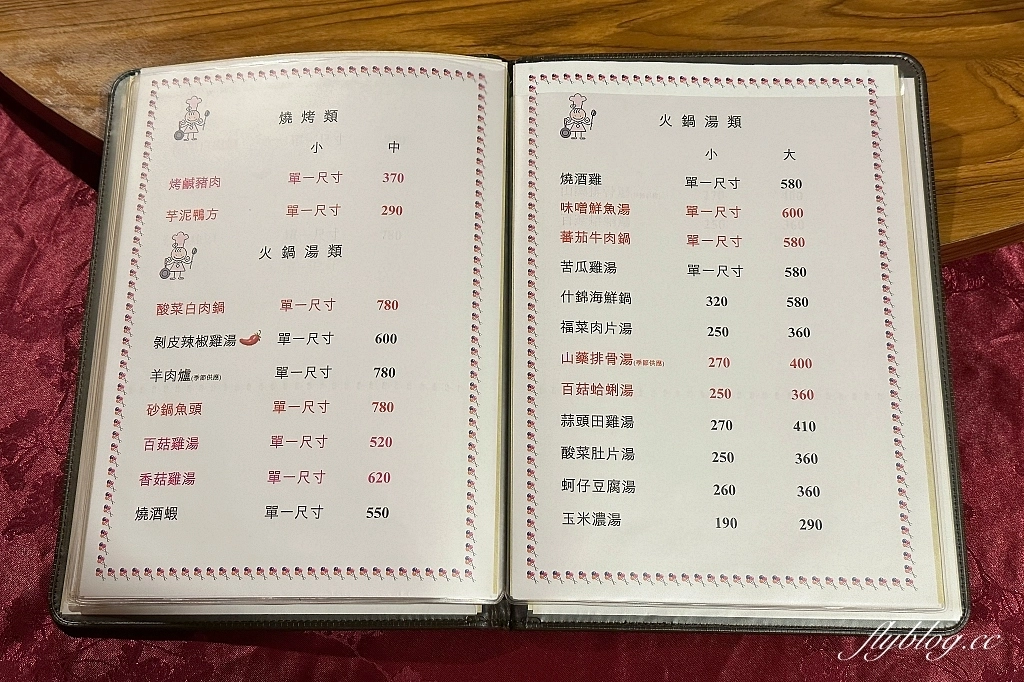 燒烤類
小 中
烤鹹豬肉 單一尺寸 370
芋泥鴨方 單一尺寸 290
火鍋湯類
酸菜白肉鍋 單一尺寸 780
剝皮辣椒雞湯 單一尺寸 600
羊肉爐(季節供應) 單一尺寸 780
砂鍋魚頭 單一尺寸 780
百菇雞湯 單一尺寸 520
香菇雞湯 單一尺寸 620
燒酒蝦 單一尺寸 550
火鍋湯類
小 大
燒酒雞 單一尺寸 580
味噌鮮魚湯 單一尺寸 600
蕃茄牛肉鍋 單一尺寸 580
苦瓜雞湯 單一尺寸 580
什錦海鮮鍋 320 580
福菜肉片湯 250 360
山藥排骨湯(季節供應) 270 400
百菇蛤蜊湯 250 360
蒜頭田雞湯 270 410
酸菜肚片湯 250 360
蚵仔豆腐湯 260 360
玉米濃湯 190 290
flyblog.cc